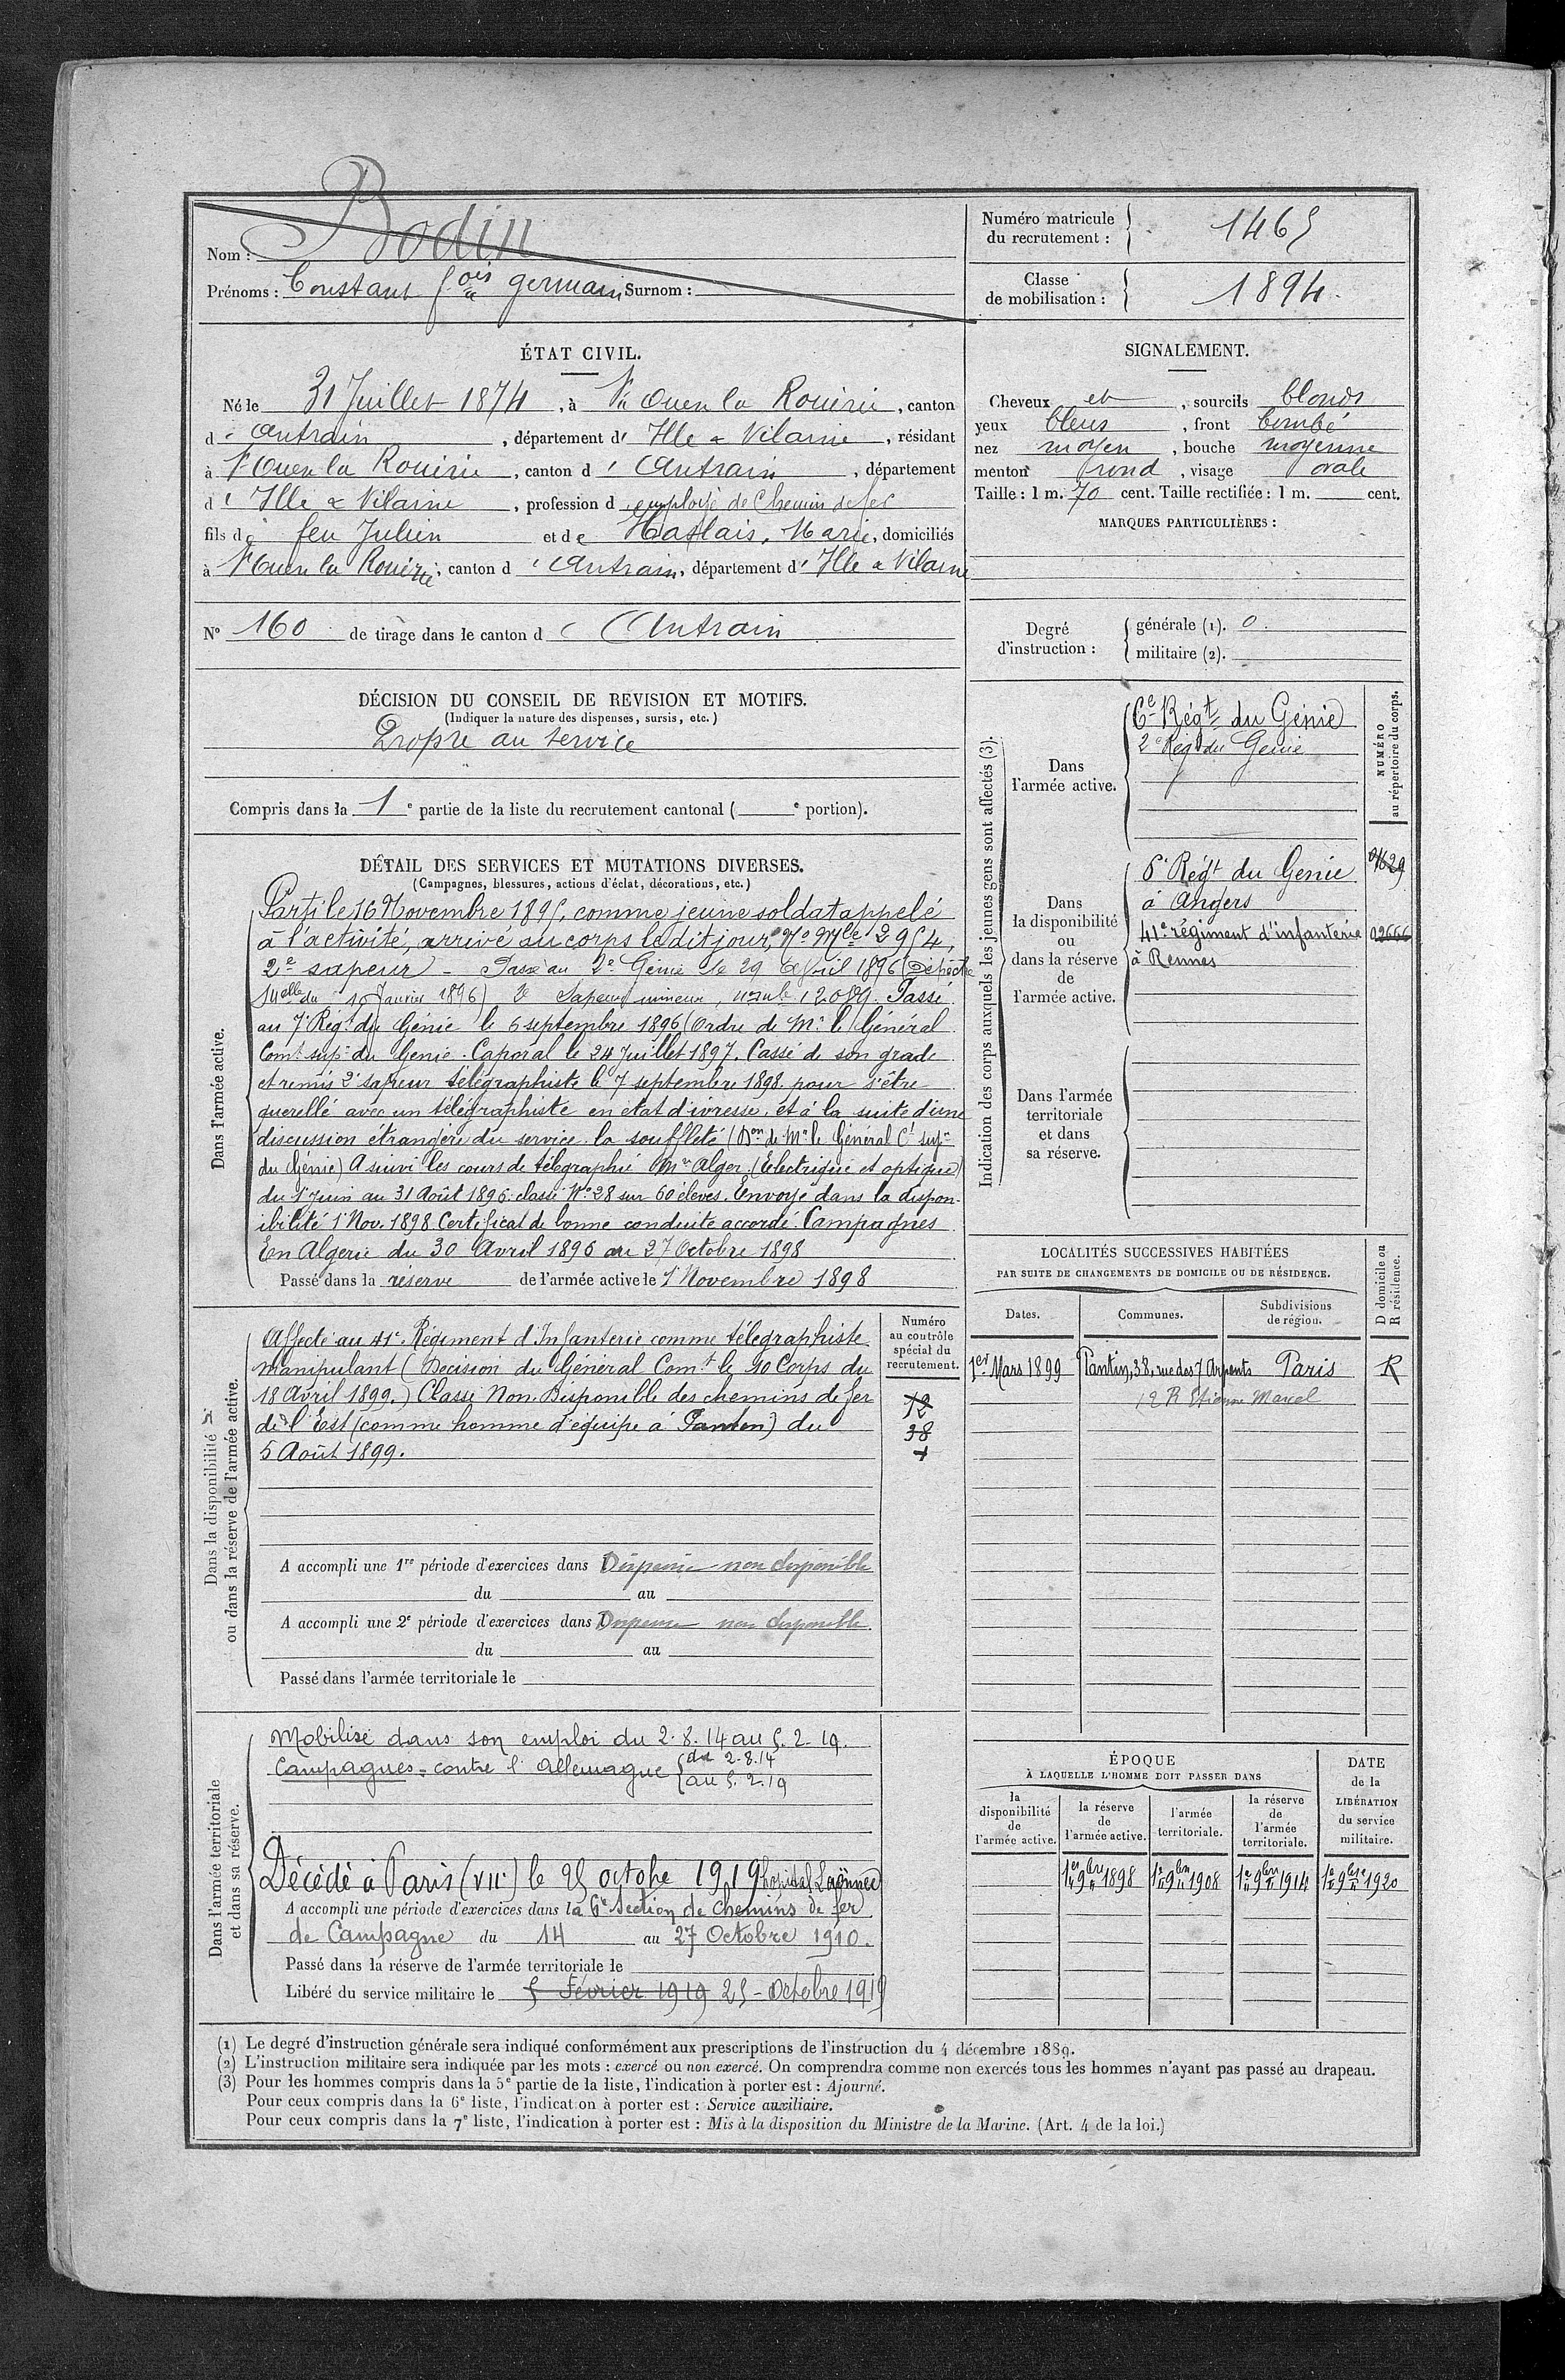 Nom : Bodin
Prénoms : Constant f.ois Germain Surnom :
Numéro matricule du recrutement : 1465
Classe de mobilisation : 1894.
ÉTAT CIVIL.
Né le 31 Juillet 1874, à St Ouen la Rouërie, canton
d'Antrain, département d'Ille & Vilaine, résidant
à St Ouen la Rouërie, canton d'Antrain, département
d'Ille & Vilaine, profession d'employé de Chemin de fer
fils de feu Julien et de Marie, domiciliés
à St Ouen la Rouërie, canton d'Antrain, département d'Ille & Vilaine
N° 160 de tirage dans le canton d'Antrain
SIGNALEMENT.
Cheveux et, sourcils blonds
yeux bleus, front bombé
nez moyen, bouche moyenne
menton rond, visage ovale
Taille : 1 m. 70 cent. Taille rectifiée : 1 m. cent.
MARQUES PARTICULIÈRES :
Degré d'instruction :
générale (1). 0.
militaire (2).
DÉCISION DU CONSEIL DE REVISION ET MOTIFS.
(Indiquer la nature des dispenses, sursis, etc.)
Propre au service
Compris dans la 1e partie de la liste du recrutement cantonal ( e portion).
DÉTAIL DES SERVICES ET MUTATIONS DIVERSES.
(Campagnes, blessures, actions d'éclat, décorations, etc.)
Dans l'armée active.
Parti le 16 Novembre 1895, comme jeune soldat appelé
à l'activité, arrivé au corps le dit jour, No Mle 2954,
2e sapeur - Passé au 2e Génie le 29 Avril 1896 (Dépêche
Mlle du 10 Janvier 1896) 2e Sapeur mineur, Passé
au 7e Régt du Génie le 6 septembre 1896 (Ordre de Mr le Général
Comt supr du Génie. Caporal le 24 Juillet 1897. Cassé de son grade
et remis 2e sapeur télégraphiste le 7 septembre 1898 pour s'être
querellé avec un télégraphiste en état d'ivresse, et à la suite d'une
discussion étrangère du service la souffleté (Don de Mr le Général Ct supr
du Génie) A suivi les cours de télégraphie Alger. (Electrique et optique)
du 1er Juin au 31 Août 1896 classé No 28 sur 60 élèves. Envoyé dans la dispon-
ibilité 1er Nov. 1898 Certificat de bonne conduite accordé. Campagnes
En Algérie du 30 Avril 1896 au 27 Octobre 1898
Passé dans la réserve de l'armée active le 1er Novembre 1898
Indication des corps auxquels les jeunes gens sont affectés (3).
NUMÉRO au répertoire du corps.
Dans l'armée active.
6e Régt du Génie
2e Régt du Genie
Dans la disponibilité ou dans la réserve de l'armée active.
6e Régt du Génie
à Angers
41e régiment d'infanterie 02666
à Rennes
Dans l'armée territoriale et dans sa réserve.
Dans la disponibilité ou dans la réserve de l'armée active.
Numéro au contrôle spécial du recrutement.
12
38
Affecté au 41e Régiment d'Infanterie comme télégraphiste
manipulant (Décision du Général Comt le 10 Corps du
18 Avril 1899.) Classé Non-Disponible des chemins de fer
de l'Est (comme homme d'équipe à Pantin) du
5 Août 1899.
A accompli une 1re période d'exercices dans Dispensé non disponible
du au
A accompli une 2e période d'exercices dans Dispensé non disponible
du au
Passé dans l'armée territoriale le
LOCALITÉS SUCCESSIVES HABITÉES
PAR SUITE DE CHANGEMENTS DE DOMICILE OU DE RÉSIDENCE.
D domicile ou R résidence.
Dates. Communes. Subdivisions de région.
1er Mars 1899 Pantin, 38, rue des 7 Arpents Paris R
12 R Etienne Marcel
Dans l'armée territoriale et dans sa réserve.
Mobilisé dans son emploi du 2.8.14 au 5.2.19.
Campagnes = contre l'Allemagne du 2.8.14
au 5.2.19
Décédé à Paris (VIIe) le 25 octobre 1919 hopital Laënnec
A accompli une période d'exercices dans la 6e Section de Chemins de fer
de Campagne du 14 au 27 Octobre 1910.
Passé dans la réserve de l'armée territoriale le
Libéré du service militaire le 5 Février 1919 25 - Octobre 1919
ÉPOQUE
À LAQUELLE L'HOMME DOIT PASSER DANS
la disponibilité de l'armée active. la réserve de l'armée active. l'armée territoriale. la réserve de l'armée territoriale.
DATE de la LIBÉRATION du service militaire.
1er 9bre 1898 1er 9bre 1908 1er 9bre 1914 1er 9bre 1920
(1) Le degré d'instruction générale sera indiqué conformément aux prescriptions de l'instruction du 4 décembre 1889.
(2) L'instruction militaire sera indiquée par les mots : exercé ou non exercé. On comprendra comme non exercés tous les hommes n'ayant pas passé au drapeau.
(3) Pour les hommes compris dans la 5e partie de la liste, l'indication à porter est : Ajourné.
Pour ceux compris dans la 6e liste, l'indication à porter est : Service auxiliaire.
Pour ceux compris dans la 7e liste, l'indication à porter est : Mis à la disposition du Ministre de la Marine. (Art. 4 de la loi.)